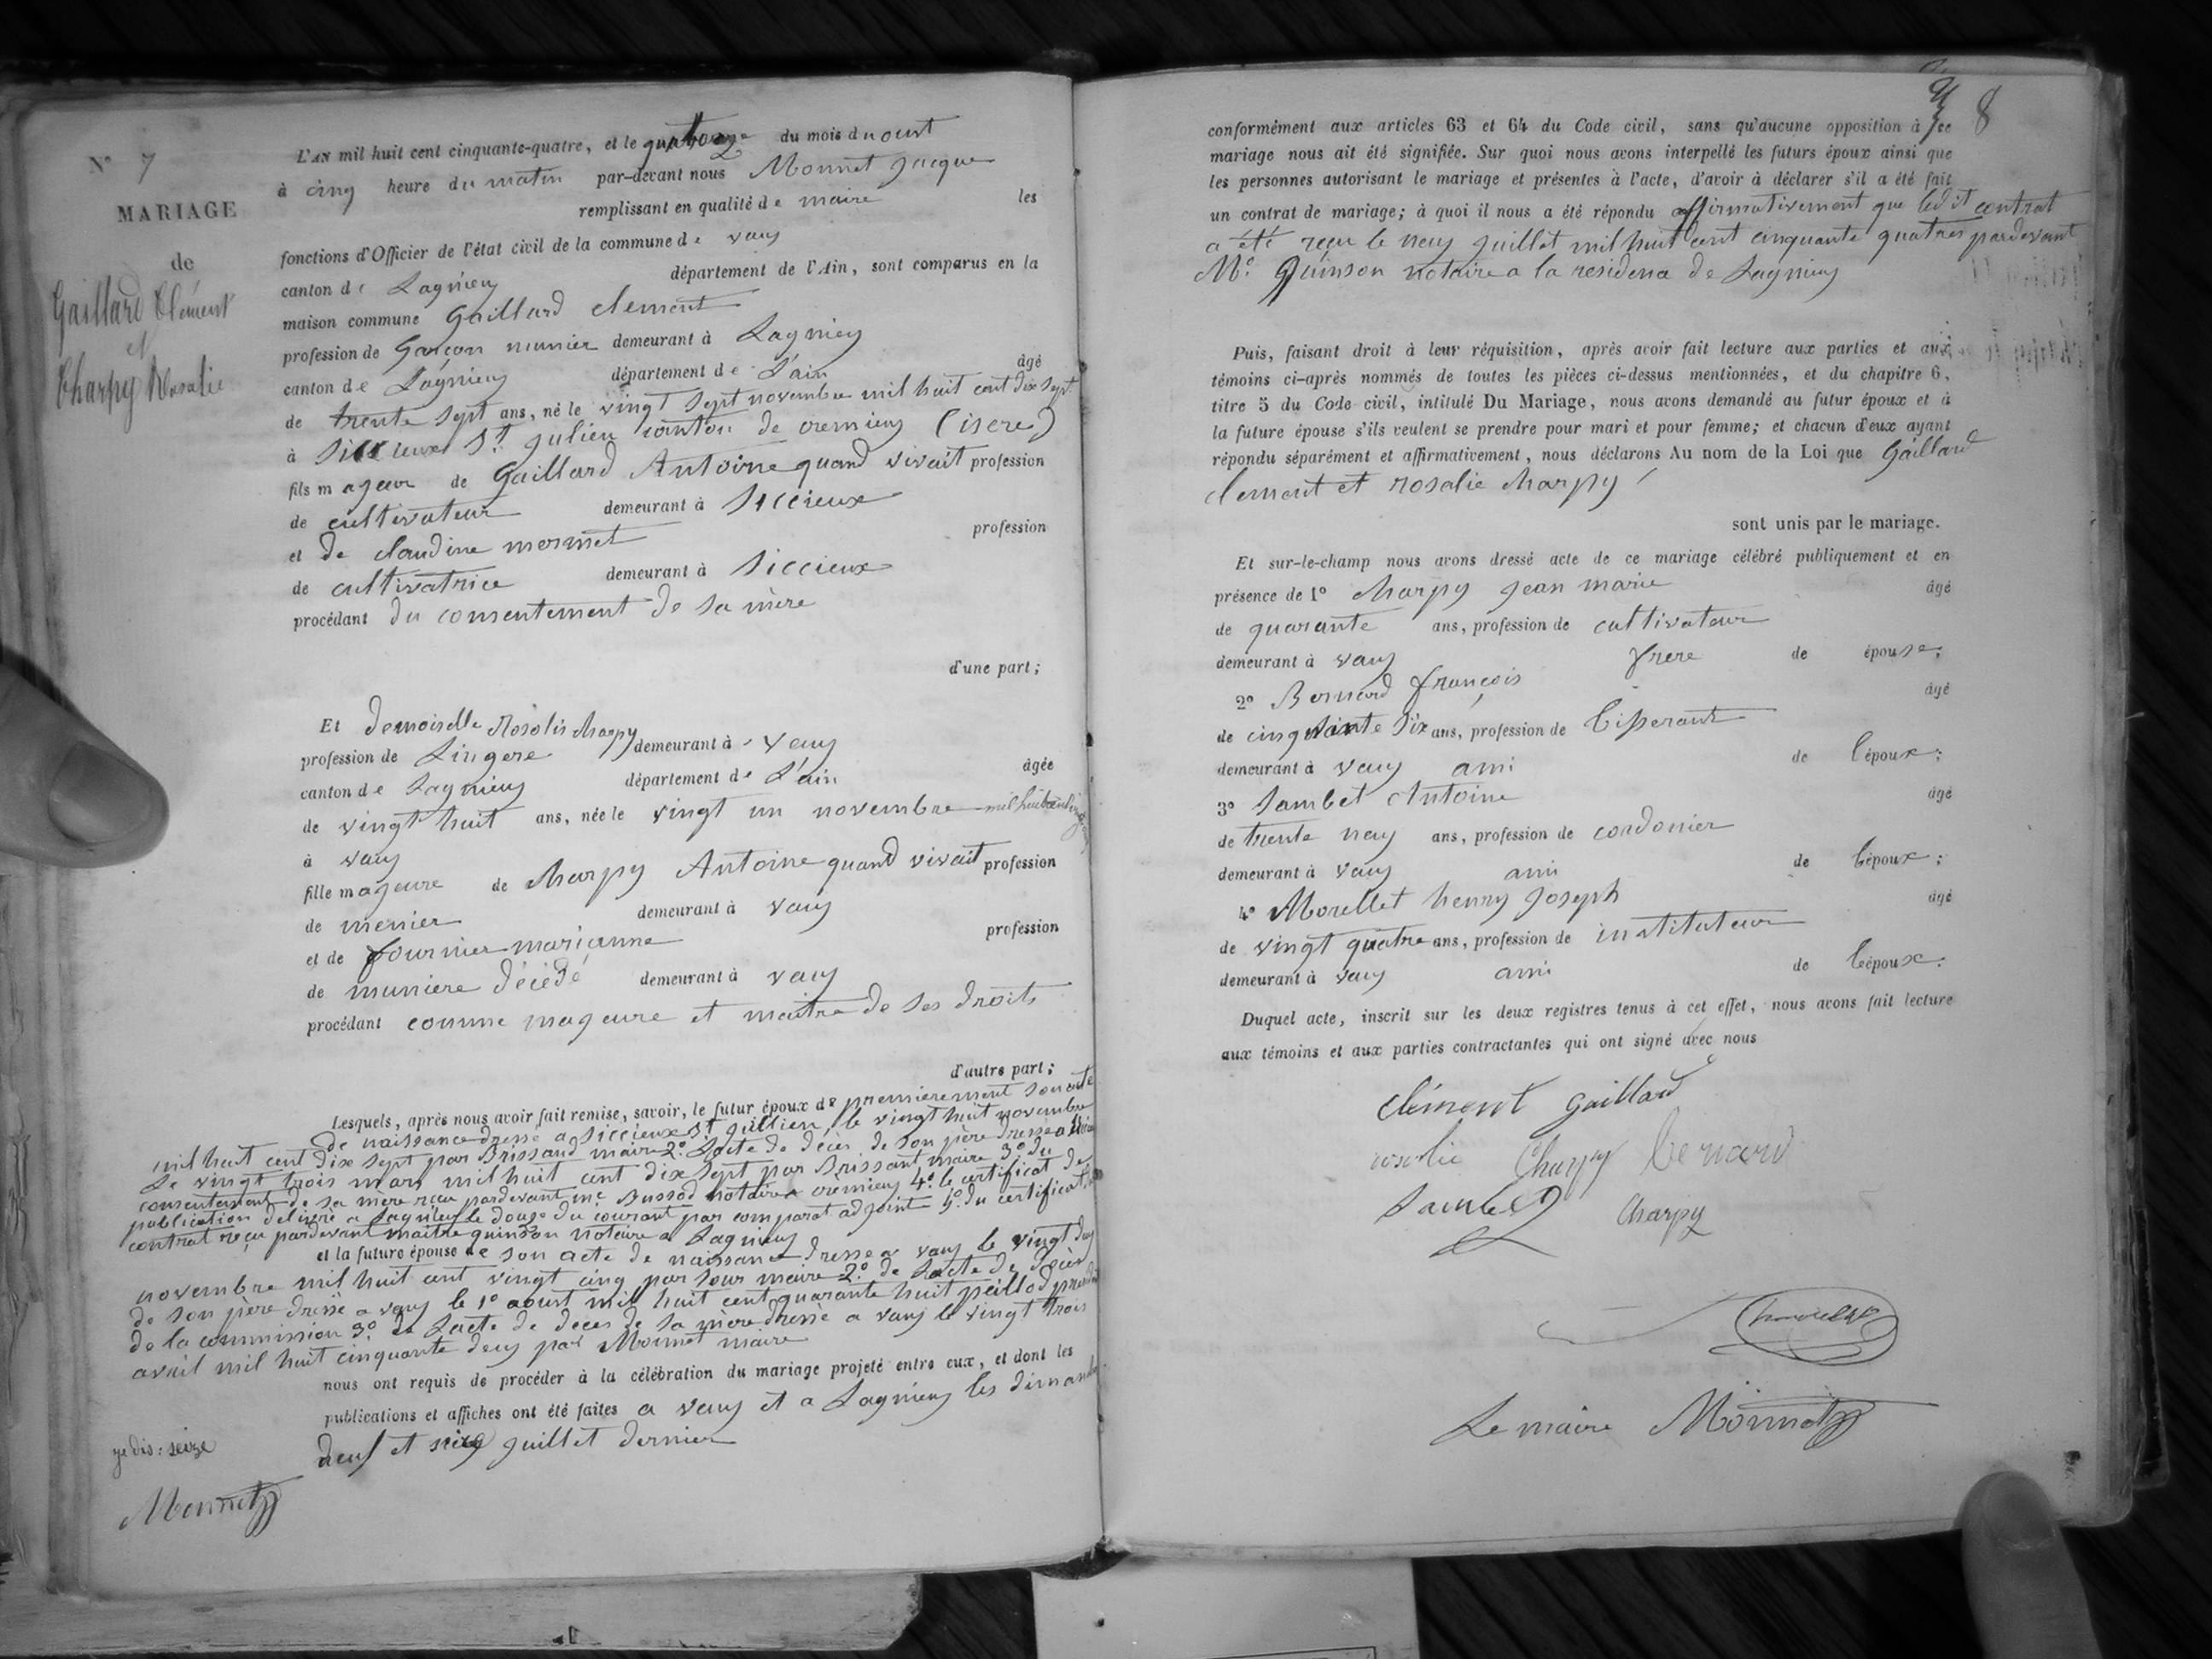 N° 7
MARIAGE
de
Gaillard Clément
et
Charpy Rosalie
L'AN mil huit cent cinquante-quatre, et le quatorze du mois d'aoust
à cinq heure du matin par-devant nous Monnet Jacque
remplissant en qualité de maire les
fonctions d'Officier de l'état civil de la commune de vaux
canton de Lagnieu département de l'Ain, sont comparus en la
maison commune Gaillard clement
profession de Garçon munier demeurant à Lagnieu
canton de Lagnieu département de L'ain âgé
de trente sept ans, né le vingt sept novembre mil huit cent dix sept
à Siccieux St. Julien canton de cremieu (isere)
fils mageur de Gaillard Antoine quand vivait profession
de cultivateur demeurant à Siccieux
et de claudine mormet profession
de cultivatrice demeurant à Siccieux
procédant du consentement de sa mère
d'une part;
Et demoiselle Rosalis charpy
profession de Lingere demeurant à vaux
canton de Lagnieu département de L'ain âgée
de vingt huit ans, née le vingt un novembre mil huit cent
à vaux
fille mageure de charpy Antoine quand vivait profession
de menier demeurant à vaux
et de fournier marianne profession
de muniere décédé demeurant à vaux
procédant comme mageure et maitre de ses droits
d'autre part;
Lesquels, après nous avoir fait remise, savoir, le futur époux de premierement son acte
de naissance dressé a Siccieux St. Jullien, le vingt huit novembre
mil huit cent dix sept par Brissaud maire 2° Lacte de décès de son père dressé a
Le vingt trois mars mil huit cent dix sept par Brissant maire 3° du
consentement de sa mere reçu pardevant me Bussod notaire a crémieu 4° le certificat de
publication délivré a Lagnieu le douze du courant par comparat adjoint 5° du certificat
contrat reçu pardevant maitre quinson notaire a Lagnieu
et la future épouse de son acte de naissance dressé a vaux le vingt deux
novembre mil huit cent vingt cinq par maire 2° de Lacte de décès
de son père dressé a vaux le 1° aoust mil huit cent quarante huit peillod
de la commission 3° de Lacte de déces de sa mere dressé a vaux le vingt trois
avril mil huit cinquante deux par Monnet maire
nous ont requis de procéder à la célébration du mariage projeté entre eux, et dont les
publications et affiches ont été faites a vaux et a Lagnieu les dimanche
neuf et seize juillet dernier
je dis: seize
Monnet
8
conformément aux articles 63 et 64 du Code civil, sans qu'aucune opposition à ce
mariage nous ait été signifiée. Sur quoi nous avons interpellé les futurs époux ainsi que
les personnes autorisant le mariage et présentes à l'acte, d'avoir à déclarer s'il a été fait
un contrat de mariage; à quoi il nous a été répondu affirmativement que ledit contrat
a été reçu le neuf juillet mil huit cent cinquante quatres pardevant
Me. Quinson notaire a la residence de Lagnieu
Puis, faisant droit à leur réquisition, après avoir fait lecture aux parties et aux
témoins ci-après nommés de toutes les pièces ci-dessus mentionnées, et du chapitre 6,
titre 5 du Code civil, intitulé Du Mariage, nous avons demandé au futur époux et à
la future épouse s'ils veulent se prendre pour mari et pour femme; et chacun d'eux ayant
répondu séparément et affirmativement, nous déclarons Au nom de la Loi que Gaillard
clement et rosalie charpy
sont unis par le mariage.
Et sur-le-champ nous avons dressé acte de ce mariage célébré publiquement et en
présence de 1° charpy jean marie âgé
de quarante ans, profession de cultivateur
demeurant à vaux frere de épouse;
2° Bernard françois âgé
de cinquante six ans, profession de tisserant
demeurant à vaux ami de l'époux;
3° Sambet Antoine âgé
de trente neuf ans, profession de cordonier
demeurant à vaux ami de l'époux;
4° Morellet henry Joseph âgé
de vingt quatre ans, profession de instituteur
demeurant à vaux ami de l'époux.
Duquel acte, inscrit sur les deux registres tenus à cet effet, nous avons fait lecture
aux témoins et aux parties contractantes qui ont signé avec nous
clément gaillard
rosalie Charpy bernard
Sambet Charpy
Le maire Monnet